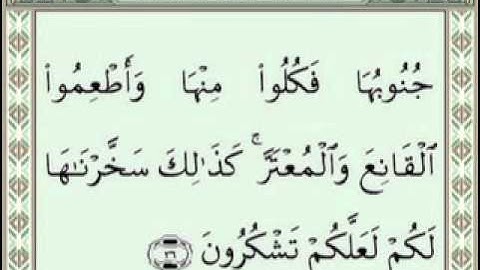 جُنُوبُهَا فَكُلُوا۟ مِنْهَا وَأَطْعِمُوا۟
ٱلْقَانِعَ وَٱلْمُعْتَرَّ ۚ كَذَٰلِكَ سَخَّرْنَٰهَا
لَكُمْ لَعَلَّكُمْ تَشْكُرُونَ ٣٦